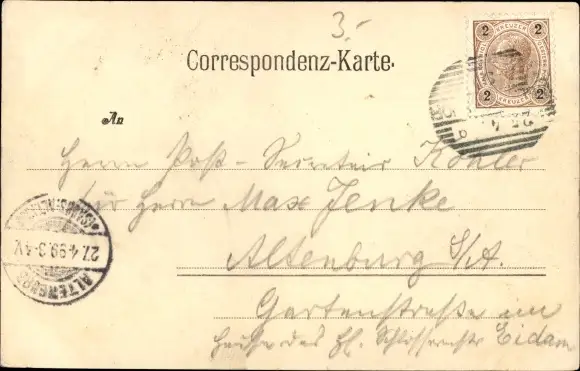 3.-
Correspondenz-Karte.
2 KREUZER 2
2 KREUZER 2
An
Herrn Post-Secretair Köhler
für Herrn Max Jenke
Altenburg S/A.
Gartenstraße im
Hause des H. Schlosserstr Eidam
ALTENBURG
27.4.99. 3-4 V.
25 4